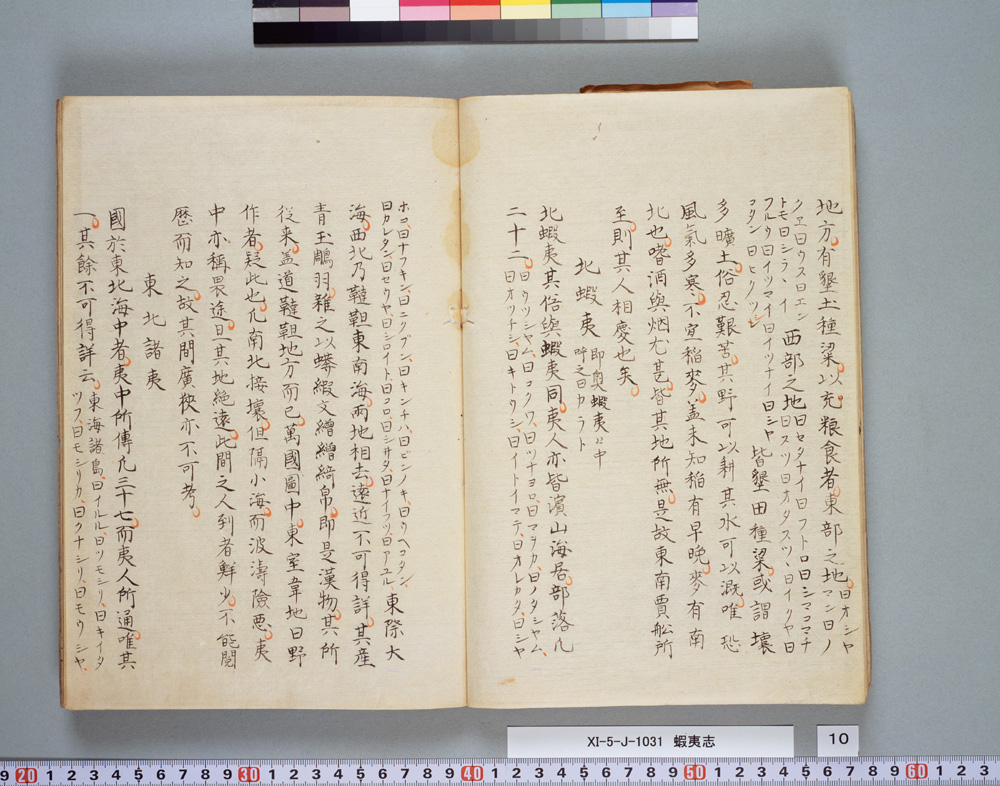 地方有墾土種粱以充粮食者東部之地曰オシヤマン曰ノ
クヱ曰ウス曰エントモ曰シラヽイ 西部之地曰セタナイ曰フトロ曰シマコマチ曰スツ曰オタスツヽ曰イリヤ曰
フルウ曰イツマイ曰イツナイ曰シヤコタン曰ヒクツシ 皆墾田種粱或謂壤
多曠土俗忍艱苦其野可以耕其水可以溉唯恐
風氣多寒不宜稲麥盖未知稲有早晚麥有南
北也嗜酒與烟尤甚皆其地所無是故東南賈舩所
至則其人相慶也矣
北蝦夷 即奥蝦夷 夷中呼之曰カラト
北蝦夷其俗與蝦夷同夷人亦皆濱山海居部落凡
二十二曰ウツシヤム曰コクワ曰ツナヨロ曰マヲカ曰ノタシヤム曰オツチシ曰キトウシ曰イトイマテ曰オレカタ曰シヤ
ホコ曰ナフキン曰ニクブン曰キンチハ曰ビンノキ曰ウヘコタン曰カレタン曰セウヤ曰シロイト曰コロ曰シサタ曰ナイフツ曰アユル 東際大
海西北乃韃靼東南海兩地相去遠近不可得詳其産
青玉鵰羽雜之以蟒緞文繒繒綺帛即是漢物其所
從来盖道韃靼地方而已萬國圖中東室韋地曰野
作者疑此也凡南北接壤但隔小海而波濤險惡夷
中亦稱畏途且其地絶遠此間之人到者鮮少不能閲
歷而知之故其間廣狹亦不可考
東北諸夷
國於東北海中者夷中所傳凡三十七而夷人所通唯其
一其餘不可得詳云東海諸島曰イルル曰ツモシリ曰キイタツフ曰モシリカ曰クナシリ曰モウシヤ
XI-5-J-1031 蝦夷志
10
9 20 1 2 3 4 5 6 7 8 9 30 1 2 3 4 5 6 7 8 9 40 1 2 3 4 5 6 7 8 9 50 1 2 3 4 5 6 7 8 9 60 1 2 3